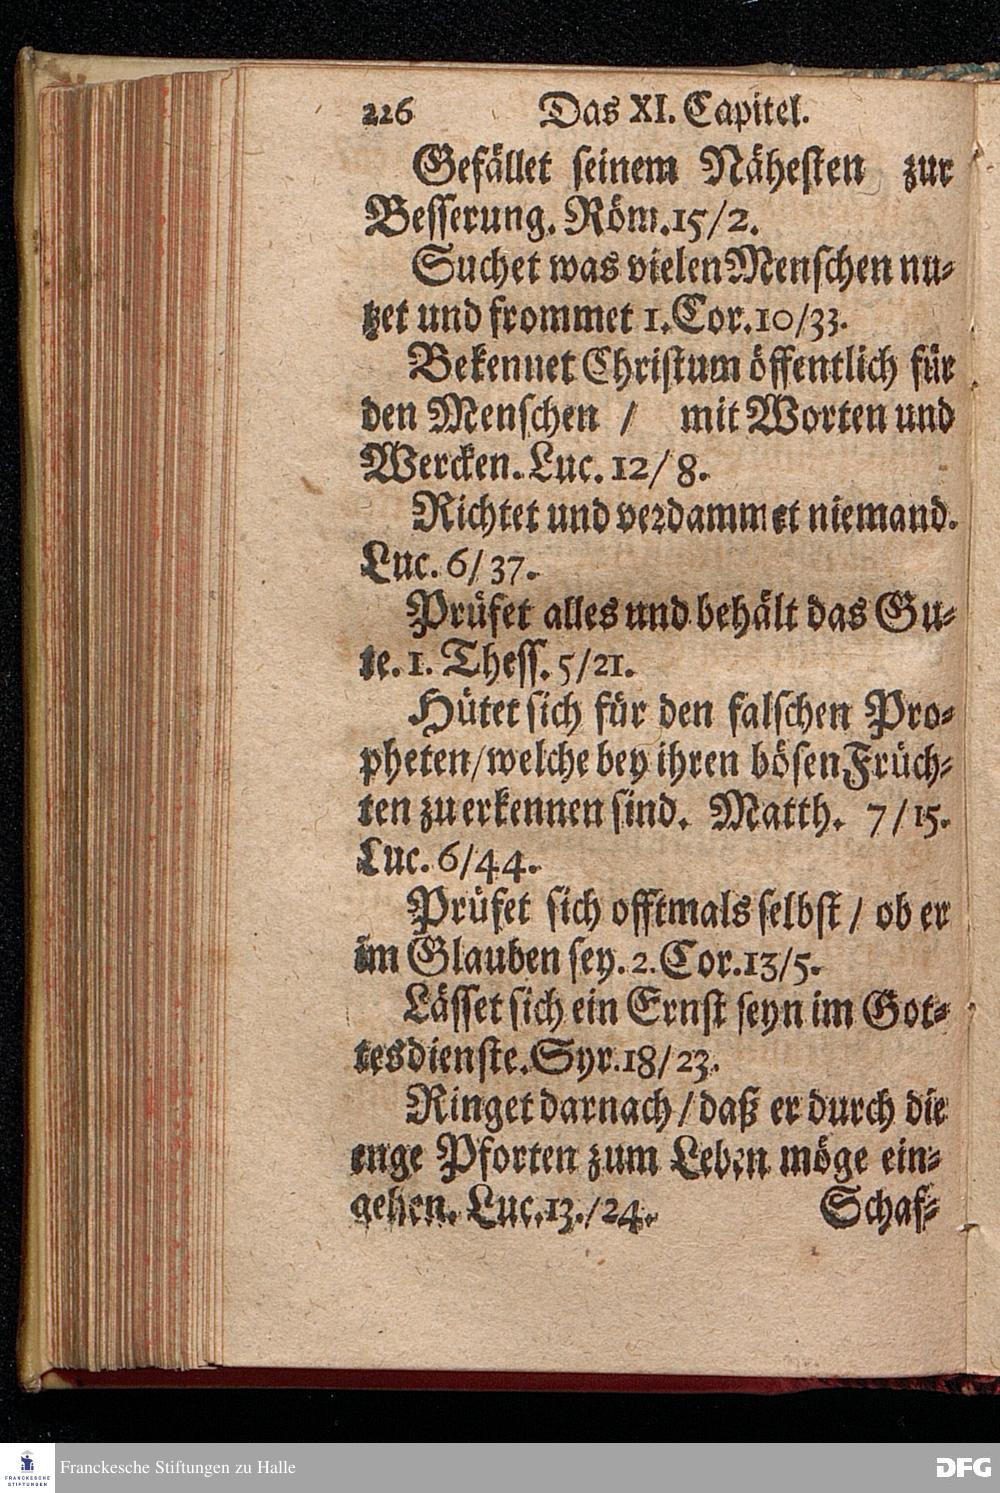 226 Das XI. Capitel.
Gefället seinem Nähesten zur
Besserung. Röm. 15/2.
Suchet was vielen Menschen nu-
tzet und frommet 1. Cor. 10/33.
Bekennet Christum öffentlich für
den Menschen / mit Worten und
Wercken. Luc. 12/8.
Richtet und verdammet niemand.
Luc. 6/37.
Prüfet alles und behält das Gu-
te. 1. Thess. 5/21.
Hütet sich für den falschen Pro-
pheten/welche bey ihren bösen Früch-
ten zu erkennen sind. Matth. 7/15.
Luc. 6/44.
Prüfet sich offtmals selbst / ob er
im Glauben sey. 2. Cor. 13/5.
Lässet sich ein Ernst seyn im Got-
tesdienste. Syr. 18/23.
Ringet darnach / daß er durch die
enge Pforten zum Leben möge ein-
gehen. Luc. 13./24. Schaf-
FRANCKESCHE
STIFTUNGEN
Franckesche Stiftungen zu Halle
DFG